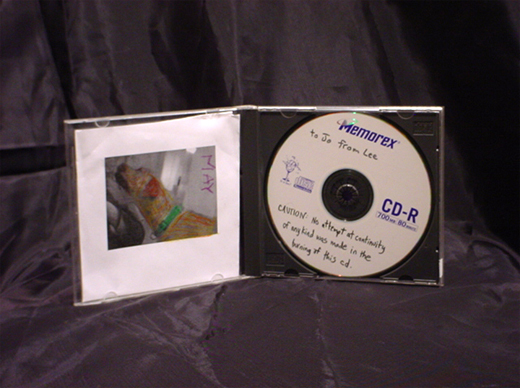 MAY
Memorex
to Jo from Lee
CD-R
700 MB 80 MIN
CAUTION: No attempt at continuity
of any kind was made in the
burning of this cd.